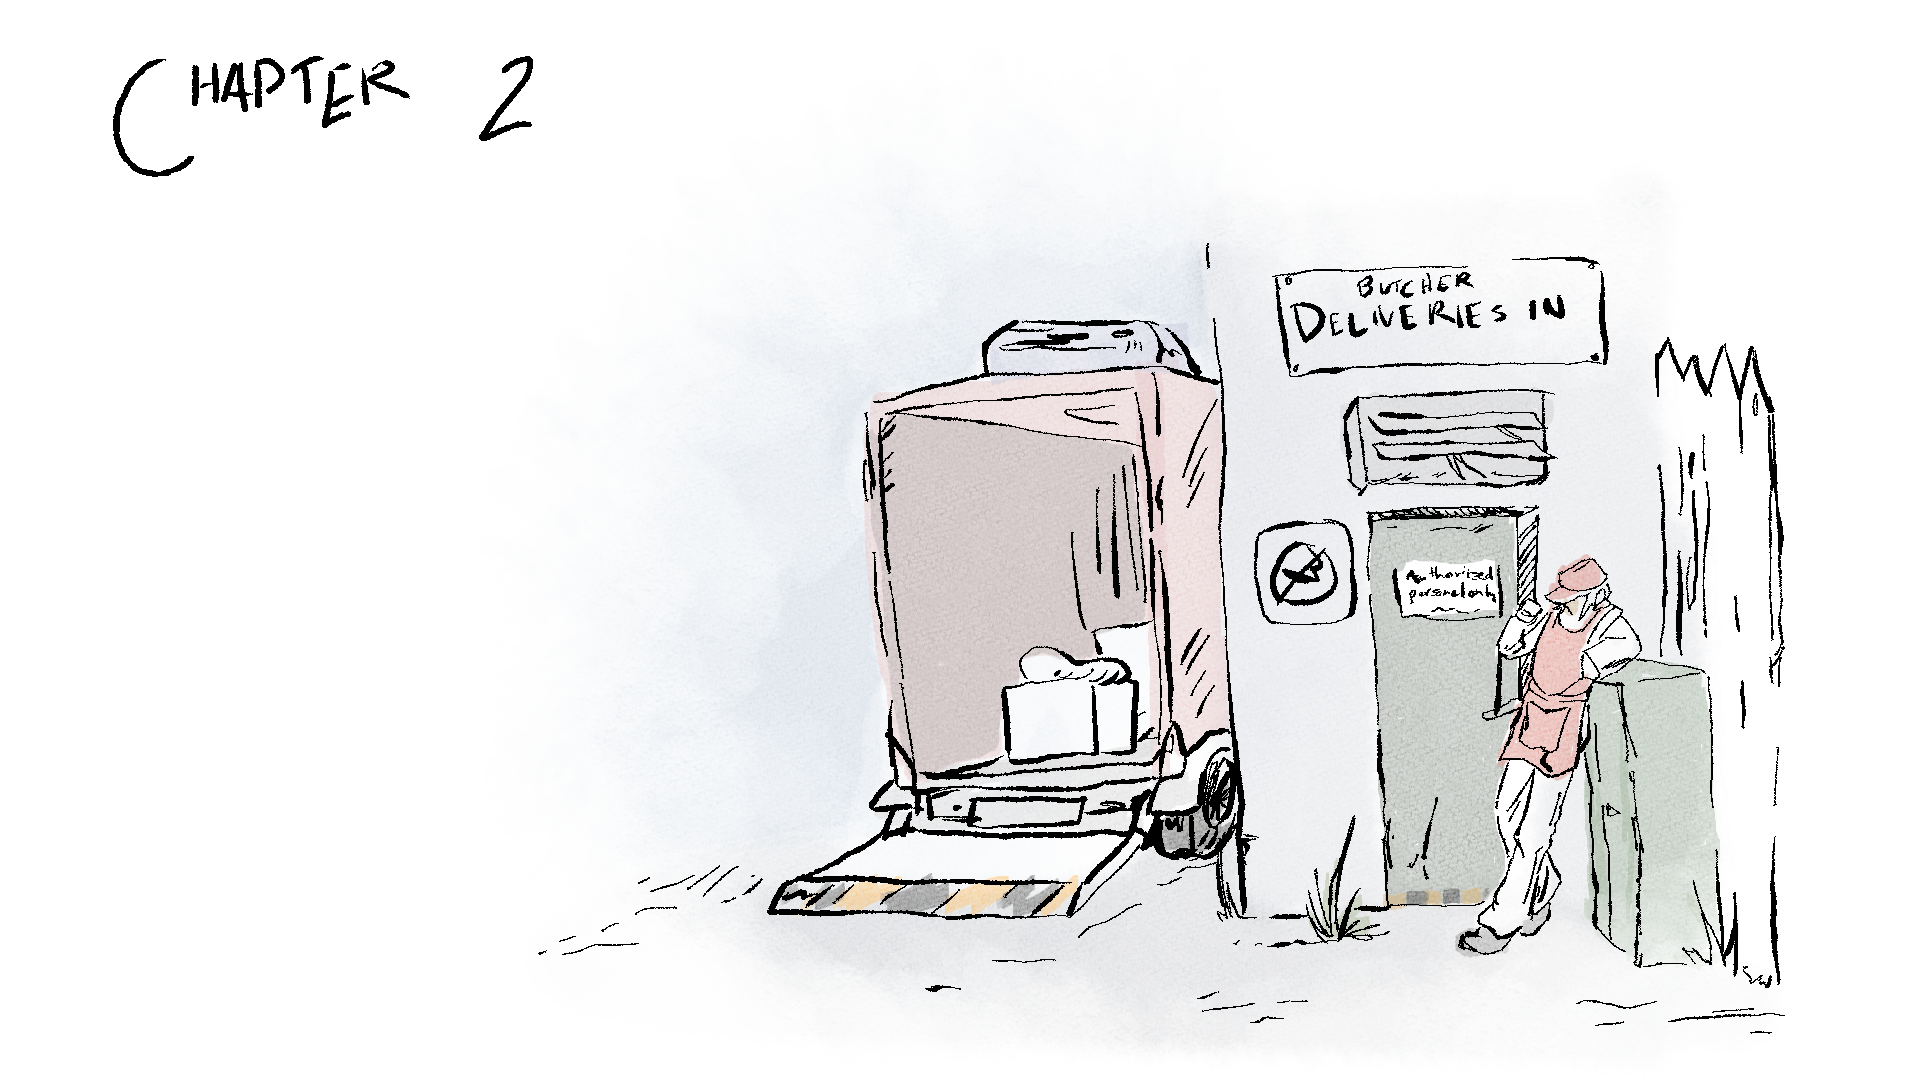 CHAPTER 2
BUTCHER
DELIVERIES IN
Authorized
personel only